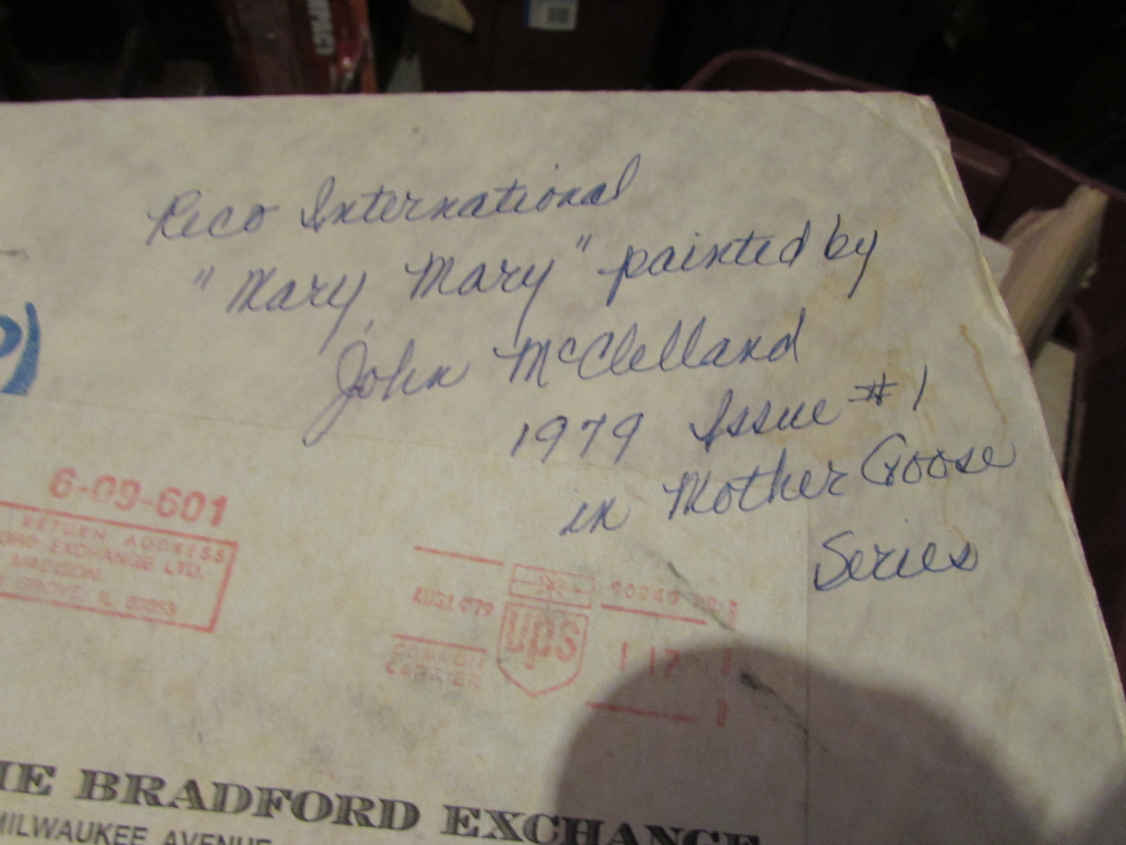 Reco International
"Mary Mary" painted by
John McClelland
1979 Issue #1
in Mother Goose
Series
6-09-601
RETURN ADDRESS
EXCHANGE LTD.
ups
COMMON
CARRIER
1 12
BRADFORD EXCHANGE
MILWAUKEE AVENUE